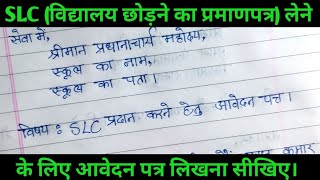 SLC (विद्यालय छोड़ने का प्रमाणपत्र) लेने
सेवा में,
श्रीमान प्रधानाचार्य महोदय,
स्कूल का नाम,
स्कूल का पता।
विषय : SLC प्रदान करने हेतु आवेदन पत्र।
के लिए आवेदन पत्र लिखना सीखिए।